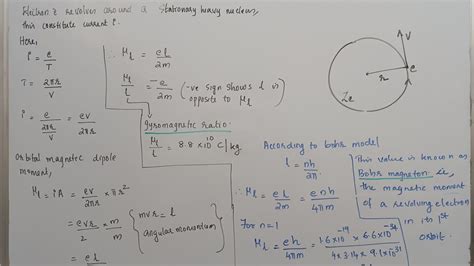 Electron revolves around a stationary heavy nucleus,
this constitute current i.
Here,
i = e/T
T = 2πr/v
i = e/(2πr/v) = ev/2πr
Orbital magnetic dipole
moment,
M_l = iA = ev/2πr × πr²
= evr/2 × m/m { mvr = l angular momentum }
= el/
∴ M_l = el/2m
M_l/l = -e/2m (-ve sign shows l is
opposite to M_l
Gyromagnetic ratio:
M_l/l = 8.8 × 10^10 C/kg.
v
e
r
Ze
According to bohr model
l = nh/2π
∴ M_l = el/2m = enh/4πm
For n=1
M_l = eh/4πm = 1.6×10^-19 × 6.6×10^-34
4 × 3.14 × 9.1×10^-31
This value is known as
Bohr magneton. i.e,
the magnetic moment
of a revolving electron
in its 1st
orbit.